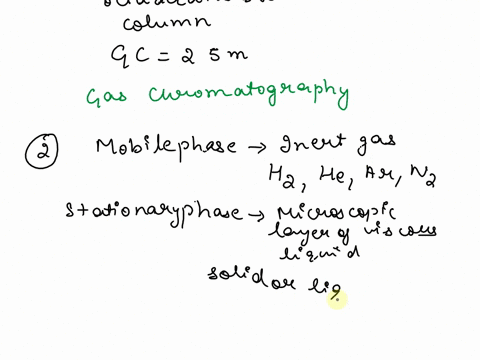 column
GC = 25m
Gas Chromatography
2 Mobilephase → Inert gas
H2, He, Ar, N2
Stationaryphase → Microscopic
layer of viscous
liquid
solid or liq